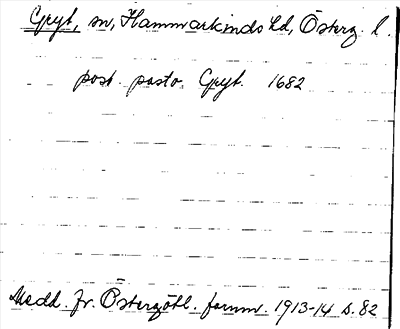 Gryt, sn, Hammarkinds hd, Österg. l.
post pasto. Gryt. 1682
Medd. fr. Östergötl. fornm. 1913-14 s. 82